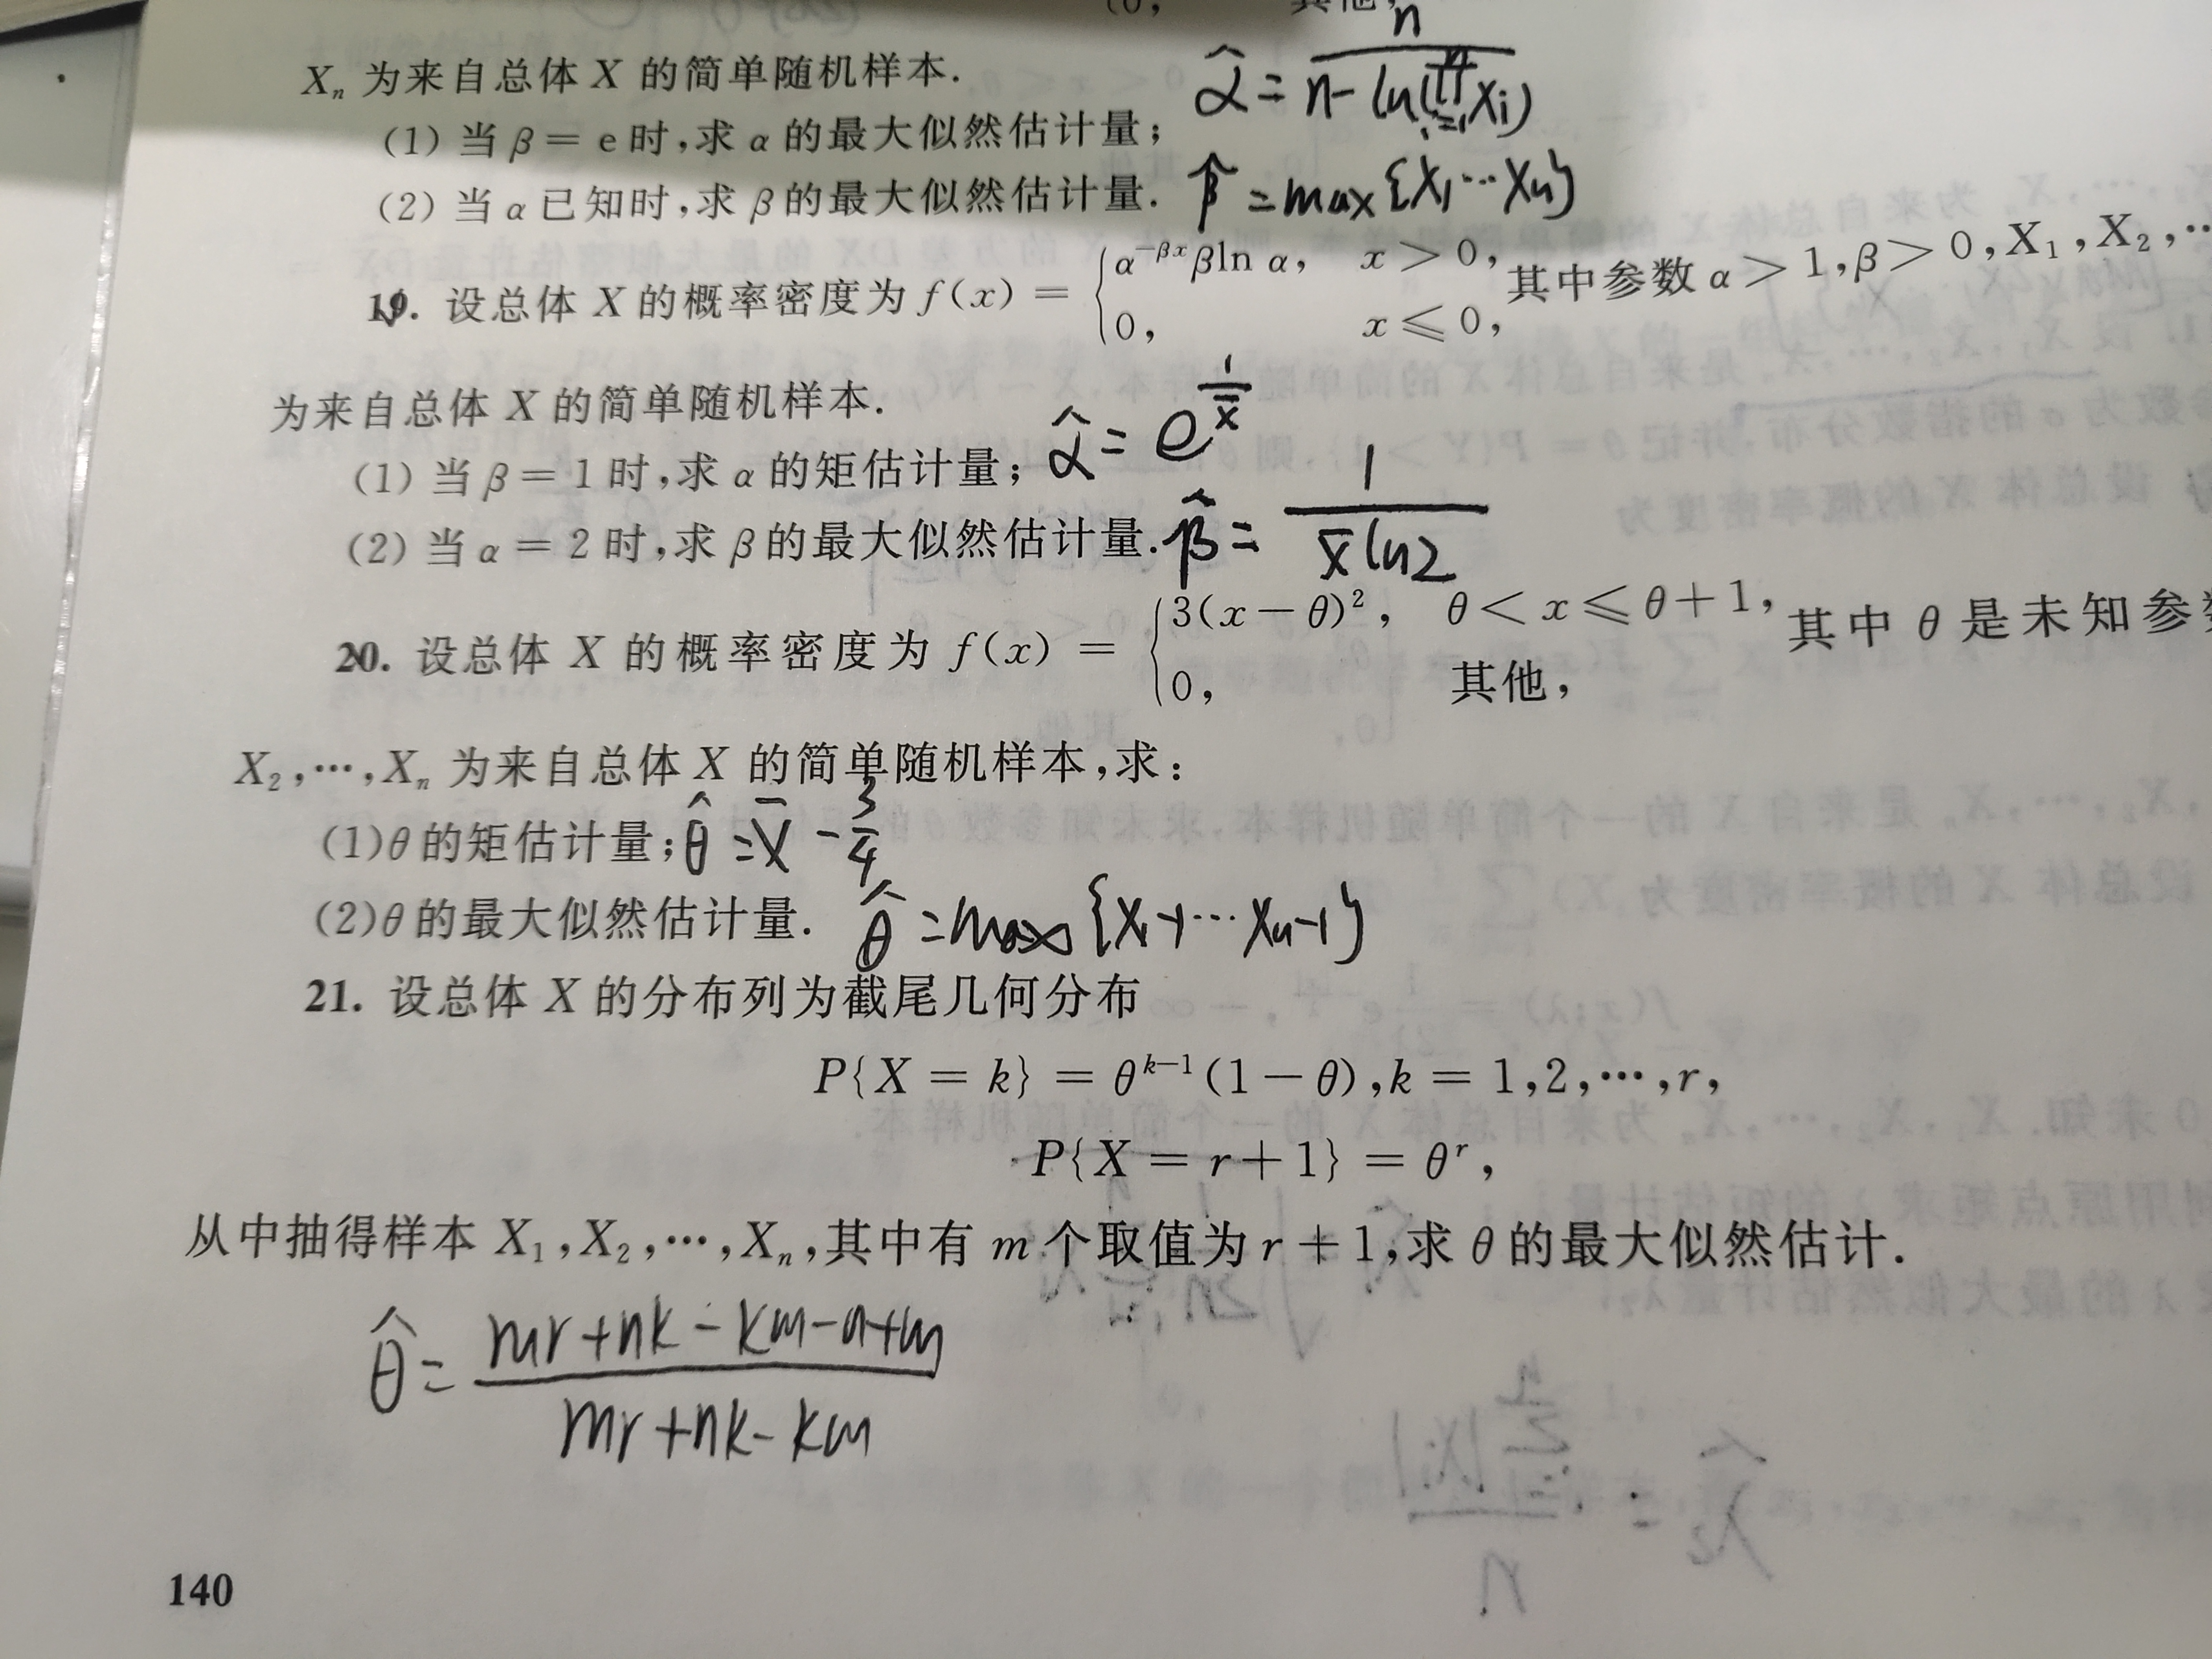 Xₙ 为来自总体 X 的简单随机样本.
(1) 当 β = e 时,求 α 的最大似然估计量; α̂ = n / (n - ln(∏ᵢ₌₁ⁿ Xi))
(2) 当 α 已知时,求 β 的最大似然估计量. β̂ = max{X₁ ⋯ Xn}
19. 设总体 X 的概率密度为 f(x) = { α^(-βx) β ln α, x > 0, 其中参数 α > 1, β > 0, X₁, X₂, ⋯
0, x ≤ 0,
为来自总体 X 的简单随机样本.
(1) 当 β = 1 时,求 α 的矩估计量; α̂ = e^(1/x̄)
(2) 当 α = 2 时,求 β 的最大似然估计量. β̂ = 1 / (x̄ ln2)
20. 设总体 X 的概率密度为 f(x) = { 3(x - θ)², θ < x ≤ θ + 1, 其中 θ 是未知参
0, 其他,
X₂, ⋯, Xₙ 为来自总体 X 的简单随机样本,求:
(1) θ 的矩估计量; θ̂ = X̄ - 3/4
(2) θ 的最大似然估计量. θ̂ = max{X₁-1 ⋯ Xn-1}
21. 设总体 X 的分布列为截尾几何分布
P{X = k} = θ^(k-1) (1 - θ), k = 1, 2, ⋯, r,
P{X = r + 1} = θ^r,
从中抽得样本 X₁, X₂, ⋯, Xₙ, 其中有 m 个取值为 r + 1, 求 θ 的最大似然估计.
θ̂ = (mr + nk - km - n + m) / (mr + nk - km)
140